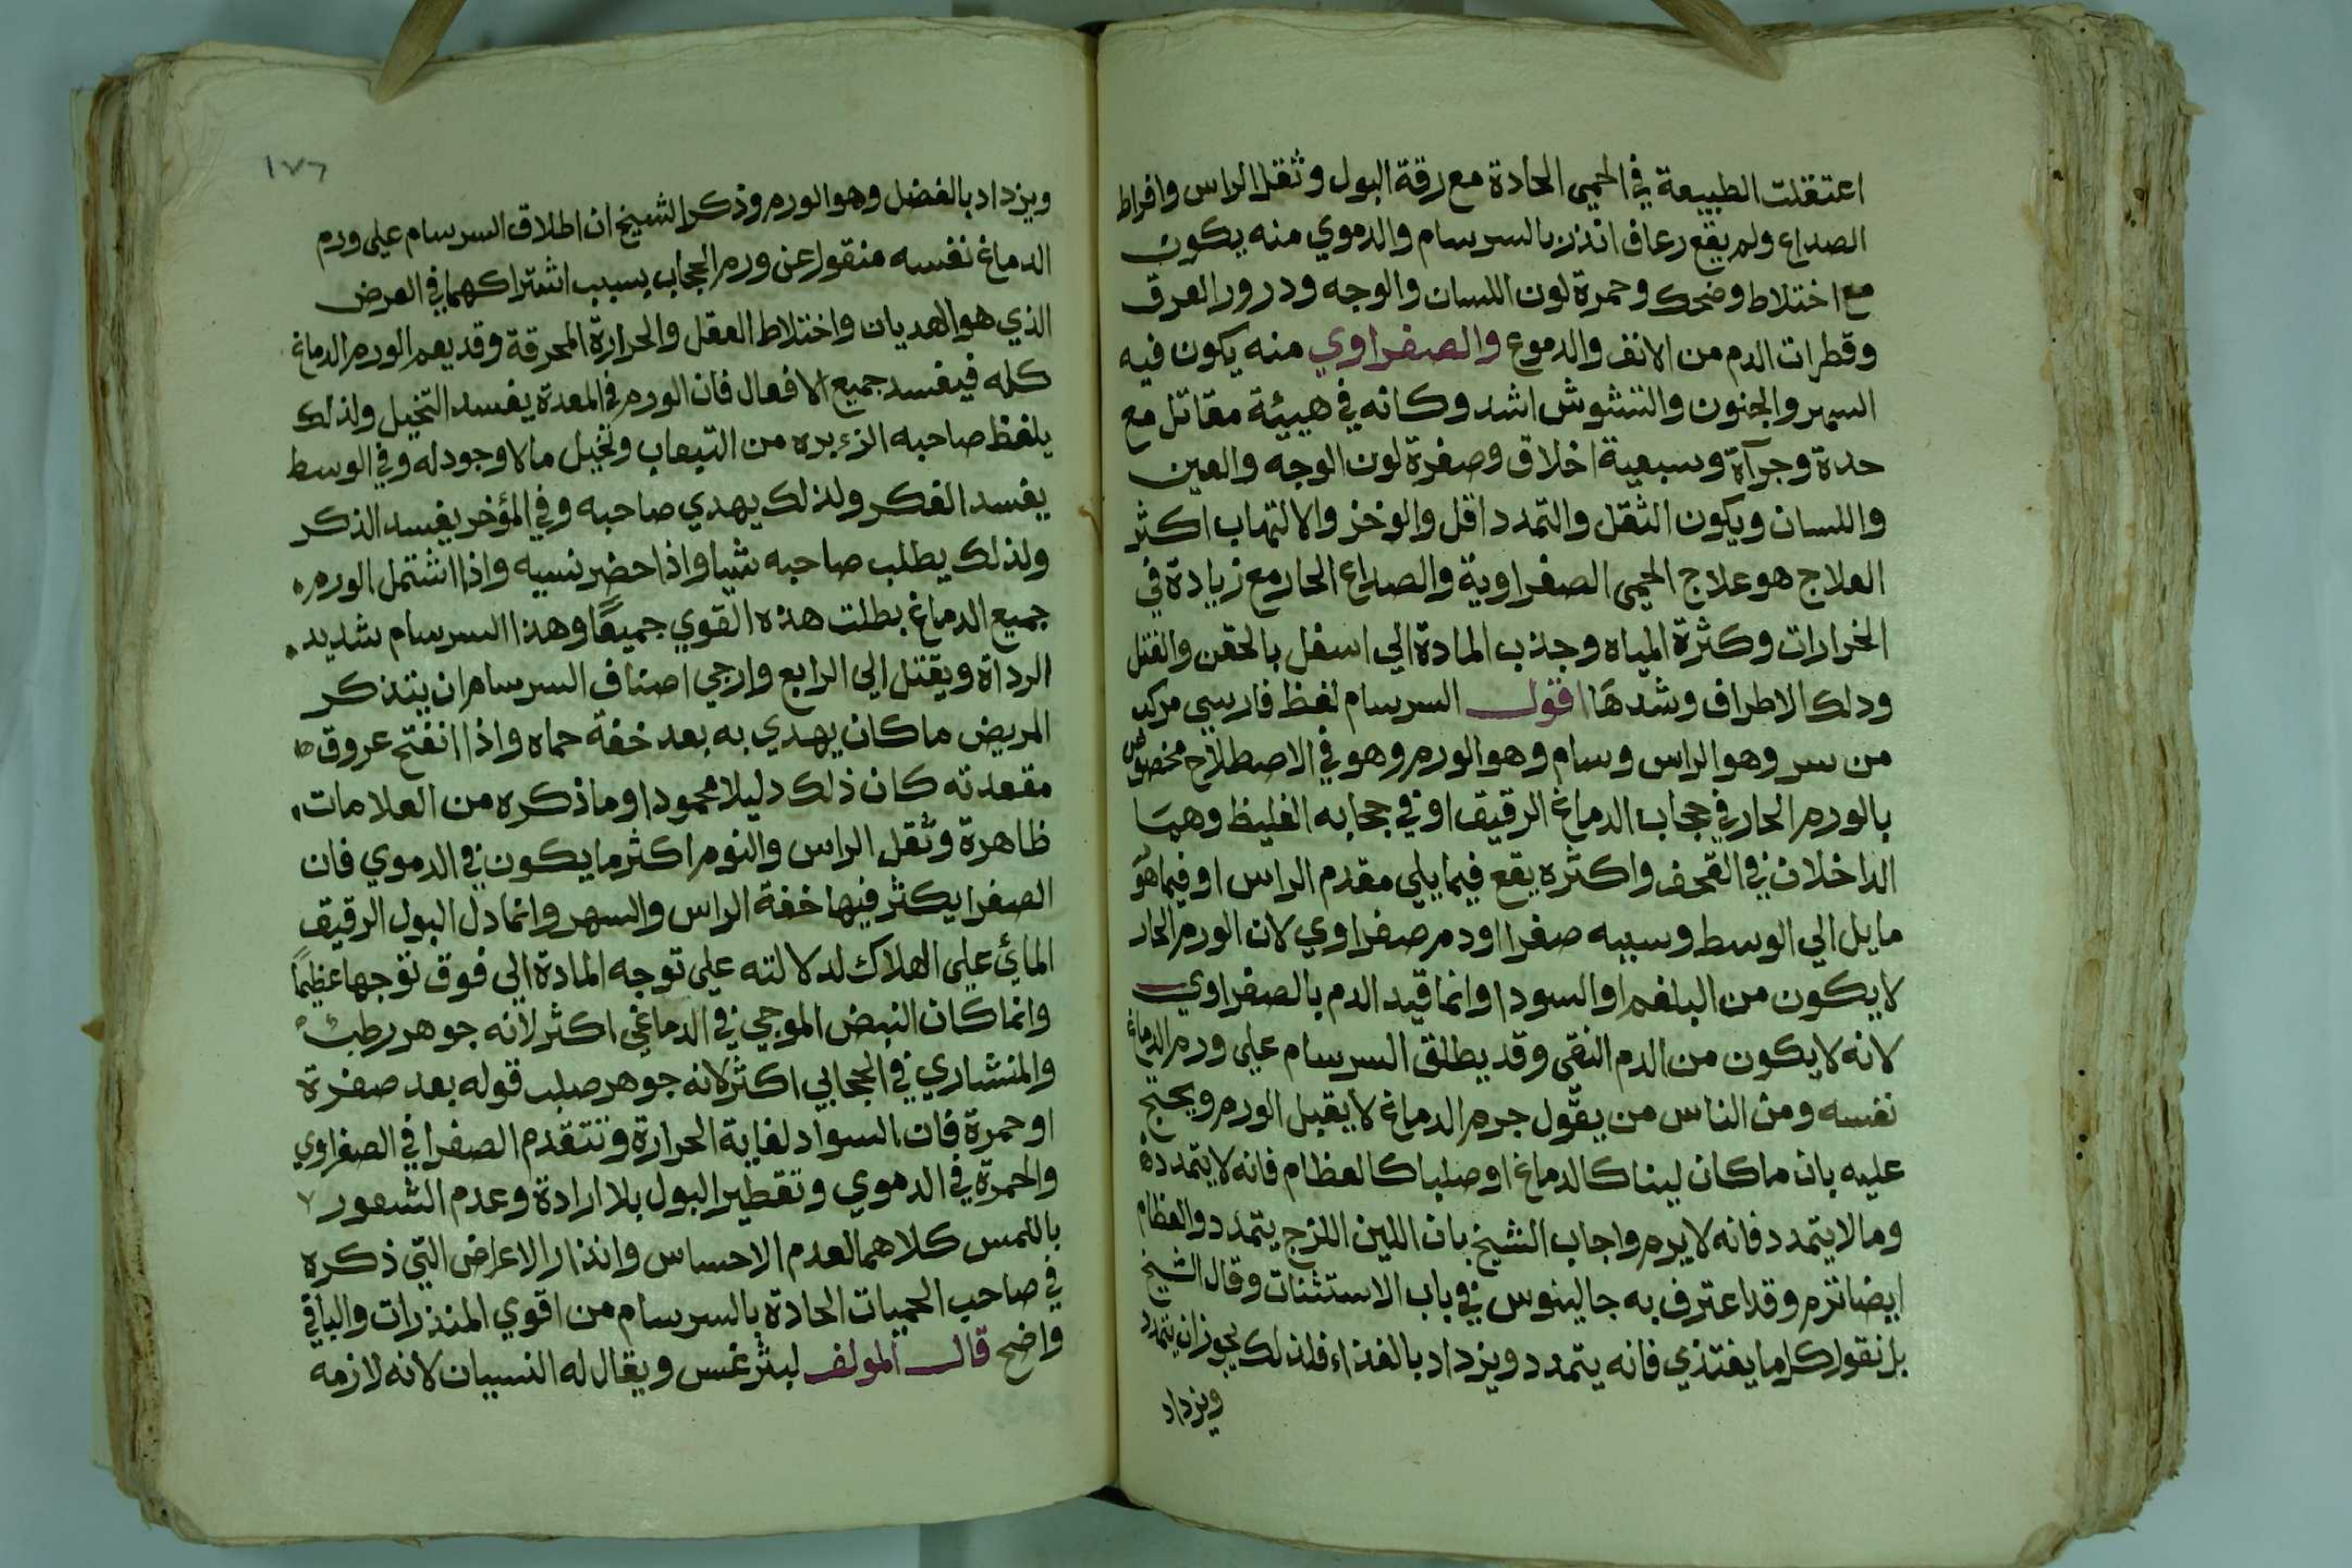 اعتقلت الطبيعة في الحمى الحادة مع رقة البول وثقل الراس وافراط
الصداع ولم يقع رعاف انذر بالسرسام والدموي منه يكون
مع اختلاط وضحك وحمرة لون اللسان والوجه ودرور العرق
وقطرات الدم من الانف والدموع والصفراوي منه يكون فيه
السهر والجنون والتشوش اشد وكانه في هيئة مقاتل مع
حدة وجرآة وسبعية اخلاق وصفرة لون الوجه والعين
واللسان ويكون الثقل والتمدد اقل والوخز والالتهاب اكثر
العلاج هو علاج الحمى الصفراوية والصداع الحار مع زيادة في
الخرارات وكثرة المياه وجذب المادة الي اسفل بالحقن والفتل
ودلك الاطراف وشدها اقول السرسام لفظ فارسي مركب
من سر وهو الراس وسام وهو الورم وهو في الاصطلاح مخصوص
بالورم الحار في حجاب الدماغ الرقيق او في حجابه الغليظ وهما
الداخلان في القحف واكثره يقع فيما يلي مقدم الراس او فيما هو
مايل الي الوسط وسببه صفرا او دم صفراوي لان الورم الحار
لا يكون من البلغم او السودا وانما قيد الدم بالصفراوي
لانه لا يكون من الدم النقي وقد يطلق السرسام علي ورم الدماغ
نفسه ومن الناس من يقول جرم الدماغ لا يقبل الورم ويحتج
عليه بان ما كان لينا كالدماغ او صلبا كالعظام فانه لا يتمدد
وما لا يتمدد فانه لا يرم واجاب الشيخ بان اللين اللزج يتمدد والعظام
ايضا ترم وقد اعترف به جالينوس في باب الاستثنات وقال الشيخ
بل نقول كل ما يغتذي فانه يتمدد ويزداد بالغذاء فلذلك يجوز ان يتمدد
ويزداد
١٧٦
ويزداد بالفضل وهو الورم وذكر الشيخ ان اطلاق السرسام علي ورم
الدماغ نفسه منقول عن ورم الحجاب بسبب اشتراكهما في العرض
الذي هو الهديان واختلاط العقل والحرارة المحرقة وقد يعم الورم الدماغ
كله فيفسد جميع الافعال فان الورم في المعدة يفسد التخيل ولذلك
يلغظ صاحبه الزءبره من التيعاب وتخيل ما لا وجود له وفي الوسط
يفسد الفكر ولذلك يهدي صاحبه وفي المؤخر يفسد الذكر
ولذلك يطلب صاحبه شيا واذا حضر نسيه واذا اشتمل الورم
جميع الدماغ بطلت هذه القوي جميعًا وهذا السرسام شديد
الرداة ويقتل الي الرابع وارجي اصناف السرسام ان يتذكر
المريض ما كان يهدي به بعد خفة حماه واذا انفتح عروق
مقعدته كان ذلك دليلا محمودا وما ذكره من العلامات
ظاهرة وثقل الراس والنوم اكثر ما يكون في الدموي فان
الصفرا يكثر فيها خفة الراس والسهر وانما دل البول الرقيق
المائي علي الهلاك لدلالته علي توجه المادة الي فوق توجها عظيمًا
وانما كان النبض الموجي في الدماغي اكثر لانه جوهر رطب
والمنشاري في الحجابي اكثر لانه جوهر صلب قوله بعد صفرة
او حمرة فان السواد لغاية الحرارة وتتقدم الصفرا في الصفراوي
والحمرة في الدموي وتقطير البول بلا ارادة وعدم الشعور
باللمس كلاهما لعدم الاحساس وانذار الاعراض التي ذكره
في صاحب الحميات الحادة بالسرسام من اقوي المنذرات والباقي
واضح قال المولف ليثرغس ويقال له النسيان لانه لازمه